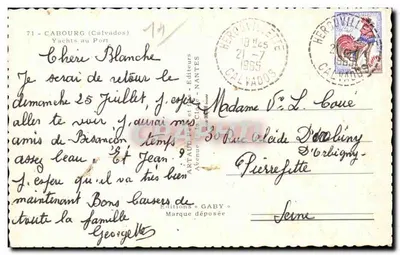 71 - CABOURG (Calvados)
Yachts au Port
14
Chère Blanche
Je serai de retour le
dimanche 25 Juillet, j'espère
aller te voir, j'aurai mes
amis de Besançon temps
assez beau. Et Jean ?
J'espère qu'il va très bien
maintenant Bons baisers de
toute la famille
Georgette
Editions "GABY"
Marque déposée
HEROUVILLETTE
18H45
1965
CALVADOS
HEROUVILLETTE
CALVADOS
Madame Ve L. Coue
30 Rue
d'Orbigny
Pierrefitte
Seine